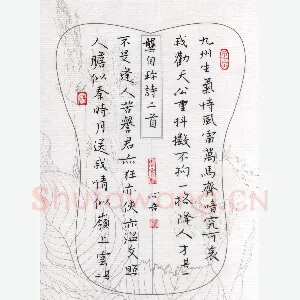 九州生氣恃風雷萬馬齊瘖究可哀
我勸天公重抖擻不拘一格降人才其一
龔自珍詩二首
不是逢人苦譽君亦狂亦俠亦溫文照
人膽似秦時月送我情似嶺上雲其二
Shufawang.CN